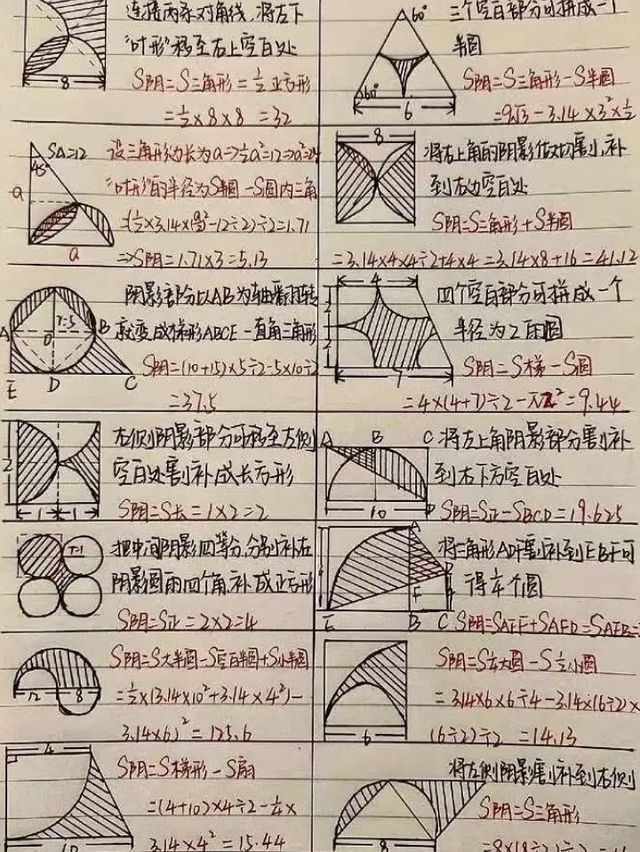 连接两条对角线,将左下
"叶形"移至右上空白处
S阴=S三角形=½正方形
=½×8×8=32
8
三个空白部分可拼成一个
半圆
S阴=S三角形-S半圆
=9√3-3.14×3²×½
60°
60°
6
S△=12
45°
a
a
设三角形边长为a=>½a²=12=>a²=24
"叶形"的半径为S半圆-S圆内三角
=>S阴=1.71×3=5.13
8
将左上角的阴影做切割,补
到右边空白处
S阴=S三角形+S半圆
=3.14×4×4÷2+4×4=3.14×8+16=41.12
A
O
B
E
D
C
阴影部分以AB为轴翻转
就变成梯形ABCE-直角三角形
S阴=(10+15)×5÷2-5×10÷2
=37.5
4
2
2
7
四个空白部分可拼成一个
半径为2的圆
S阴=S梯-S圆
=4×(4+7)÷2-π2²=9.44
2
1
1
右侧阴影部分可移至左侧
空白处割补成长方形
S阴=S长=1×2=2
A
B
C
D
10
将左上角阴影部分割补
到右下方空白处
S阴=S正-SBCD=19.625
r=1
把中间阴影四等分,分别补在
阴影圆的四个角,补成正方形
S阴=S正=2×2=4
A
D
F
E
B
C
将三角形ADF割补到EBF可
得¼个圆
S阴=SAEF+SAFD=SAEB=
12
8
S阴=S大半圆-S空白半圆+S小半圆
=½×(3.14×10²+3.14×4²)-
3.14×6)²=125.6
6
S阴=S¼大圆-S½小圆
=3.14×6×6÷4-3.14×(6÷2)×
(6÷2)÷2=14.13
4
10
S阴=S梯形-S扇
=(4+10)×4÷2-¼×
3.14×4²=15.44
8
将左侧阴影割补到右侧
S阴=S三角形